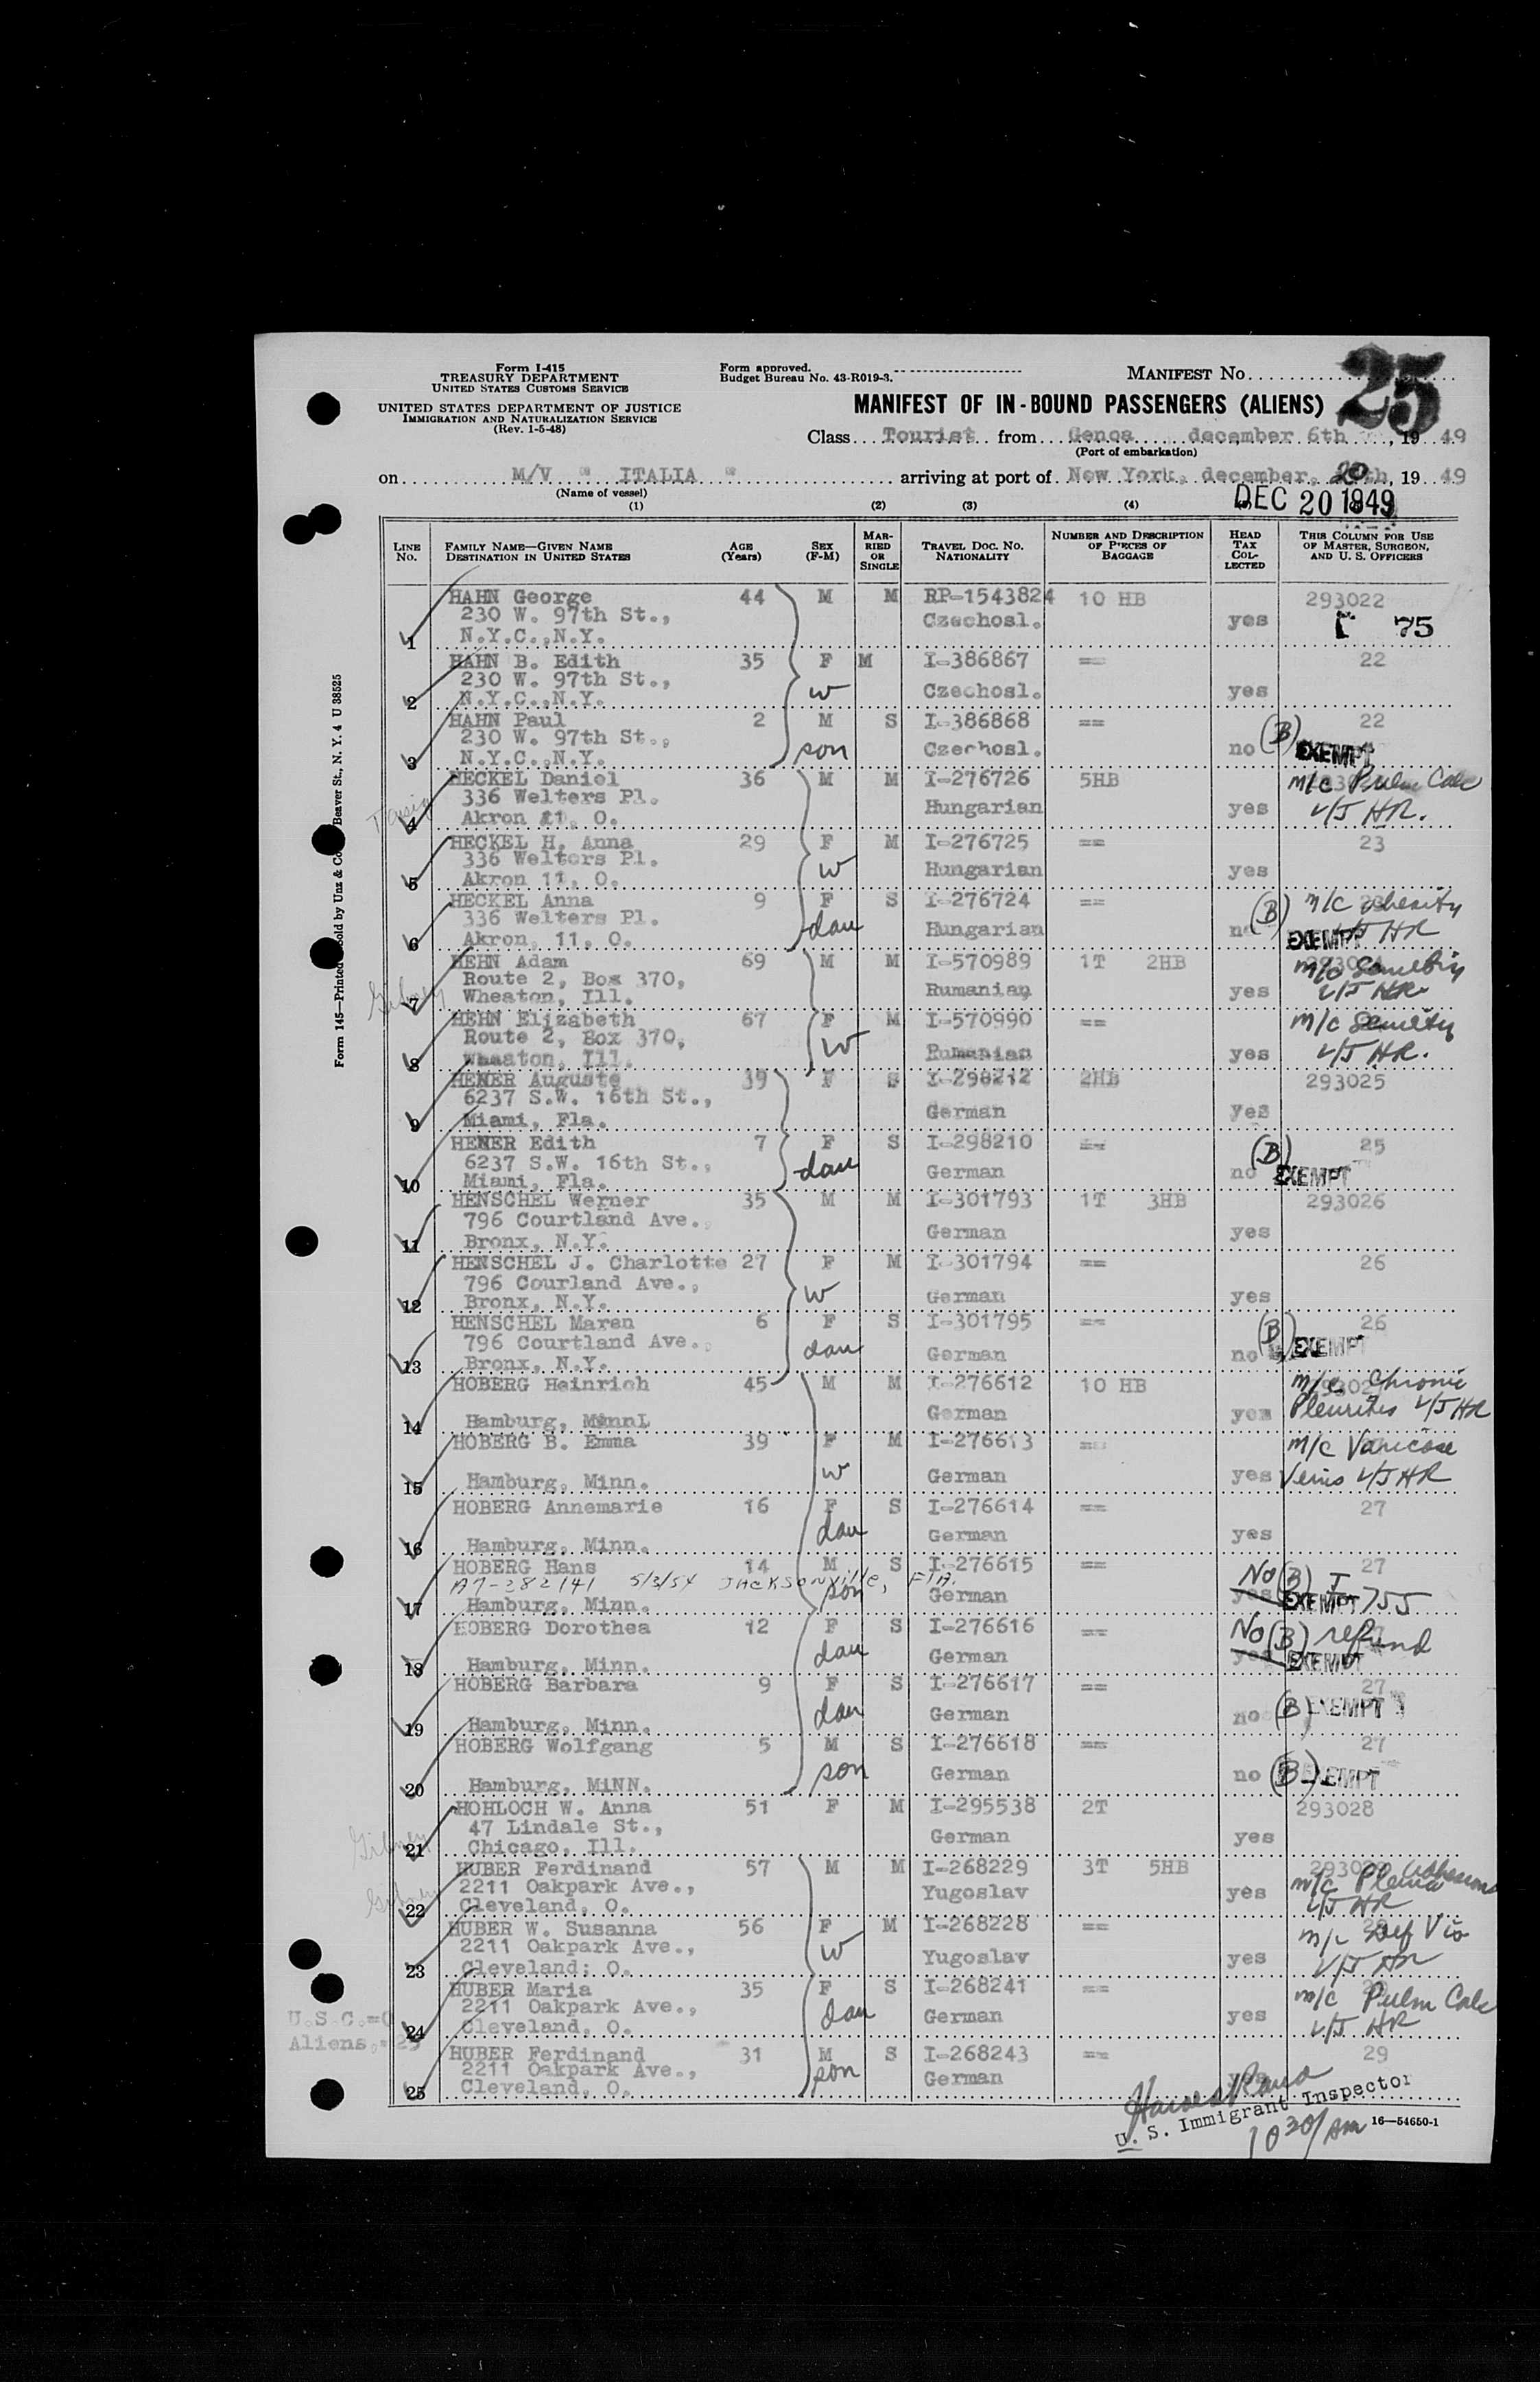 Form I-415
TREASURY DEPARTMENT
UNITED STATES CUSTOMS SERVICE
UNITED STATES DEPARTMENT OF JUSTICE
IMMIGRATION AND NATURALIZATION SERVICE
(Rev. 1-5-48)
Form approved.
Budget Bureau No. 43-R019-3.
MANIFEST NO. 25
MANIFEST OF IN-BOUND PASSENGERS (ALIENS)
Class Tourist from Genoa december 6th, 19 49
(Port of embarkation)
on M/V " ITALIA " arriving at port of New York, december, 20th, 19 49
(Name of vessel)
DEC 20 1949
(1) (2) (3) (4)
LINE NO. FAMILY NAME—GIVEN NAME DESTINATION IN UNITED STATES AGE (Years) SEX (F-M) MARRIED OR SINGLE TRAVEL DOC. NO. NATIONALITY NUMBER AND DESCRIPTION OF PIECES OF BAGGAGE HEAD TAX COLLECTED THIS COLUMN FOR USE OF MASTER, SURGEON, AND U. S. OFFICERS
HAHN George 44 M M RP-1543824 10 HB 293022
230 W. 97th St., Czechosl. yes 75
1 N.Y.C.,N.Y.
HAHN B. Edith 35 F M I-386867 == 22
230 W. 97th St., w Czechosl. yes
2 N.Y.C.,N.Y.
HAHN Paul 2 M S I-386868 == 22
230 W. 97th St., son Czechosl. no (B) EXEMPT
3 N.Y.C.,N.Y.
HECKEL Daniel 36 M M I-276726 5HB m/c Pulm Calc
336 Welters Pl. Hungarian yes V/J HR.
4 Akron 11, O.
HECKEL H. Anna 29 F M I-276725 == 23
336 Welters Pl. w Hungarian yes
5 Akron 11, O.
HECKEL Anna 9 F S I-276724 == (B) m/c obesity
336 Welters Pl. dau Hungarian no EXEMPT V/J HR
6 Akron, 11, O.
HEHN Adam 69 M M I-570989 1T 2HB m/c Senility
Route 2, Box 370, Rumanian yes V/J HR
7 Wheaton, Ill.
HEHN Elizabeth 67 F M I-570990 == m/c Senility
Route 2, Box 370, W Rumanian yes V/J HR.
8 Wheaton, Ill.
HENER Auguste 39 F S I-298212 2HB 293025
6237 S.W. 16th St., German yes
9 Miami, Fla.
HENER Edith 7 F S I-298210 == 25
6237 S.W. 16th St., dau German no (B) EXEMPT
10 Miami, Fla.
HENSCHEL Werner 35 M M I-301793 1T 3HB 293026
796 Courtland Ave., German yes
11 Bronx, N.Y.
HENSCHEL J. Charlotte 27 F M I-301794 == 26
796 Courland Ave., w German yes
12 Bronx, N.Y.
HENSCHEL Maren 6 F S I-301795 == 26
796 Courtland Ave., dau German no (B) EXEMPT
13 Bronx, N.Y.
HOBERG Heinrich 45 M M I-276612 10 HB m/c Chronic
German yes Pleurities V/J HR
14 Hamburg, Minn.
HOBERG B. Emma 39 F M I-276613 == m/c Varicose
w German yes Veins V/J HR
15 Hamburg, Minn.
HOBERG Annemarie 16 F S I-276614 == 27
dau German yes
16 Hamburg, Minn.
HOBERG Hans 14 M S I-276615 == 27
A7-282141 5/3/54 JACKSONVIlle, FlA.
17 Hamburg, Minn. son German yes No (B) EXEMPT 755
HOBERG Dorothea 12 F S I-276616 == No (B) refund
18 Hamburg, Minn. dau German yes EXEMPT
HOBERG Barbara 9 F S I-276617 == 27
19 Hamburg, Minn. dau German no (B) EXEMPT
HOBERG Wolfgang 5 M S I-276618 == 27
20 Hamburg, MiNN. son German no (B) EXEMPT
HOHLOCH W. Anna 51 F M I-295538 2T 293028
47 Lindale St., German yes
21 Chicago, Ill.
HUBER Ferdinand 57 M M I-268229 3T 5HB m/c Pleura Adhesions
2211 Oakpark Ave., Yugoslav yes V/J HR
22 Cleveland, O.
HUBER W. Susanna 56 F M I-268228 == m/c Def Vis
2211 Oakpark Ave., W Yugoslav yes V/J HR
23 Cleveland; O.
HUBER Maria 35 F S I-268241 == m/c Pulm Calc
2211 Oakpark Ave., dau German yes V/J HR
24 Cleveland, O.
HUBER Ferdinand 31 M S I-268243 == 29
2211 Oakpark Ave., son German
25 Cleveland, O.
U.S.C.=0
Aliens.=25
U. S. Immigrant Inspector
10 30/AM 16—54650-1
Form 145—Printed Sold by Unz & Co Beaver St., N. Y. 4 U 38525